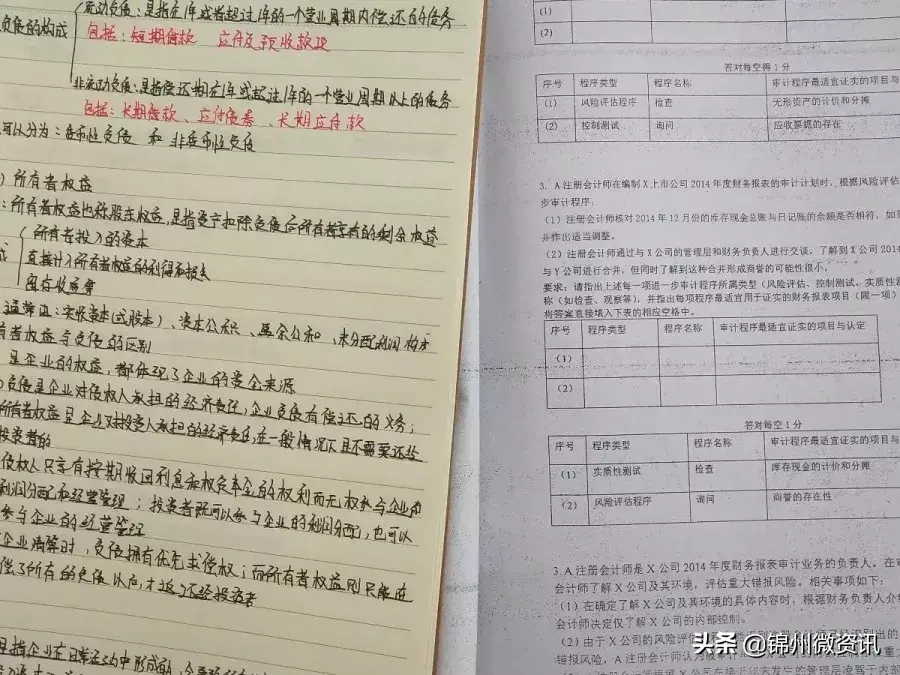 流动负债:是指在1年或者超过1年的一个营业周期内偿还的债务
负债的构成
包括:短期借款 应付及预收款项
非流动负债:是指偿还期在1年或超过1年的一个营业周期以上的债务
包括:长期借款、应付债券、长期应付款
可以分为:货币性负债 和 非货币性负债
) 所有者权益
:所有者权益也称股东权益,是指资产扣除负债后所有者享有的剩余权益
所有者投入的资本
成
直接计入所有者权益的利得和损失
留存收益等
通常由:实收资本(或股本)、资本公积、盈余公积、未分配利润构成
有者权益与负债的区别
是企业的权益,都体现了企业的资金来源
负债是企业对债权人承担的经济责任,企业负债有偿还的义务;
所有者权益是企业对投资人承担的经济责任,在一般情况下是不需要还给
投资者的
债权人只享有按期收回利息和权资本金的权利而无权参与企业的
利润分配和经营管理;投资者既可以参与企业的利润分配,也可以
参与企业的经营管理
企业清算时,负债拥有优先求偿权;而所有者权益则只能在
偿了所有的负债以后,才返还给投资者
是指企业在日常活动中形成的、
(1)
(2)
答对每空得1分
序号 程序类型 程序名称 审计程序最适宜证实的项目与
(1) 风险评估程序 检查 无形资产的计价和分摊
(2) 控制测试 询问 应收票据的存在
3. A注册会计师在编制X上市公司2014年度财务报表的审计计划时,根据风险评估
步审计程序:
(1)注册会计师核对2014年12月份的库存现金总账与日记账的余额是否相符,如
并作出适当调整。
(2)注册会计师通过与X公司的管理层和财务负责人进行交谈,了解到X公司2014
与Y公司进行合并,但同时了解到这种合并形成商誉的可能性很小。
要求:请指出上述每一项进一步审计程序所属类型(风险评估、控制测试、实质性
称(如检查、观察等),并指出每项程序最适宜用于证实的财务报表项目(限一项)
将答案直接填入下表的相应空格中。
序号 程序类型 程序名称 审计程序最适宜证实的项目与认定
(1)
(2)
答对每空1分
序号 程序类型 程序名称 审计程序最适宜证实的项目与
(1) 实质性测试 检查 库存现金的计价和分摊
(2) 风险评估程序 询问 商誉的存在性
3.A注册会计师是X公司2014年度财务报表审计业务的负责人。在审
会计师了解X公司及其环境,评估重大错报风险。相关事项如下:
(1)在确定了解X公司及其环境的具体内容时,根据财务负责人介
会计师决定仅了解X公司的内部控制。
(2)由于X公司的风险评
错报风险,A注册会计师认为
头条 @锦州微资讯